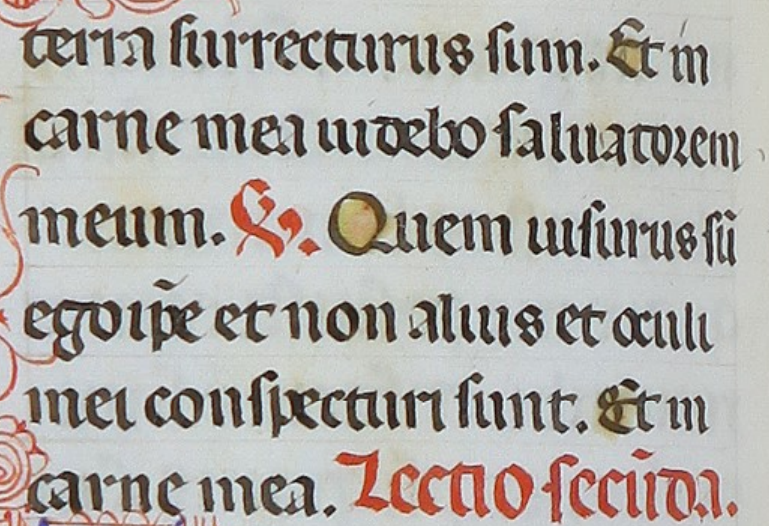 terra surrecturus sum. Et in
carne mea uidebo saluatorem
meum. ℣. Quem uisurus sū
ego ip̄e et non alius et oculi
mei conspecturi sunt. Et in
carne mea. Lectio secūda.